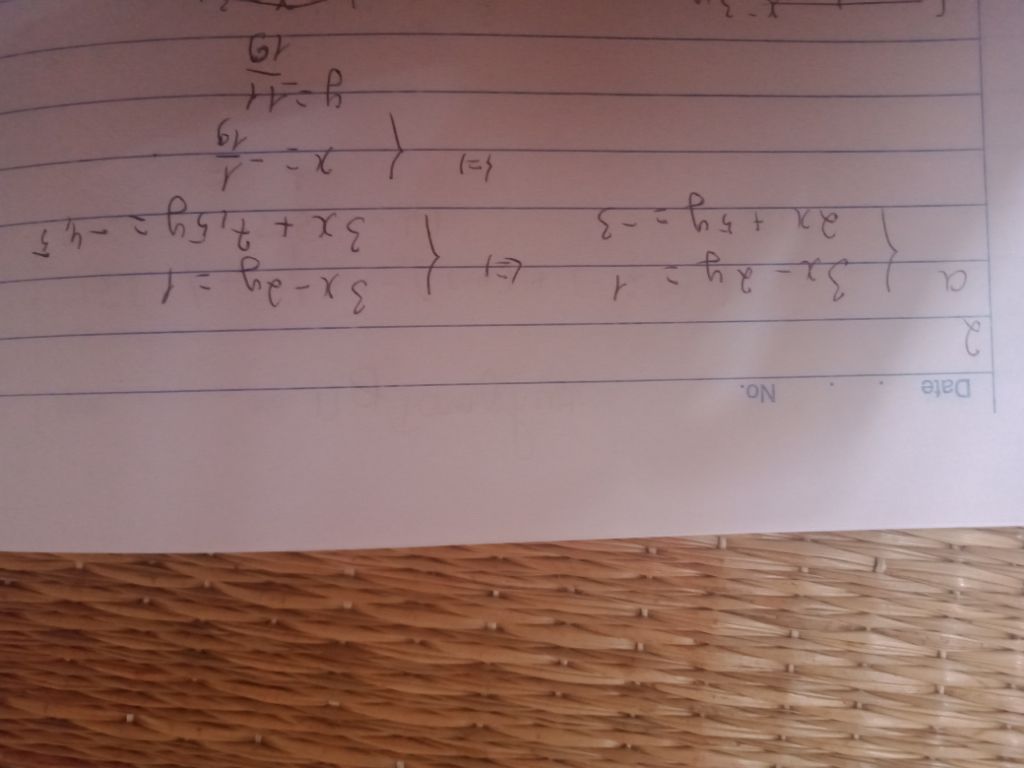 Date . . . No.
2
a { 3x - 2y = 1 <=> { 3x - 2y = 1
2x + 5y = -3 3x + 7,5y = -4,5
<=> { x = -1/19
y = -11/19